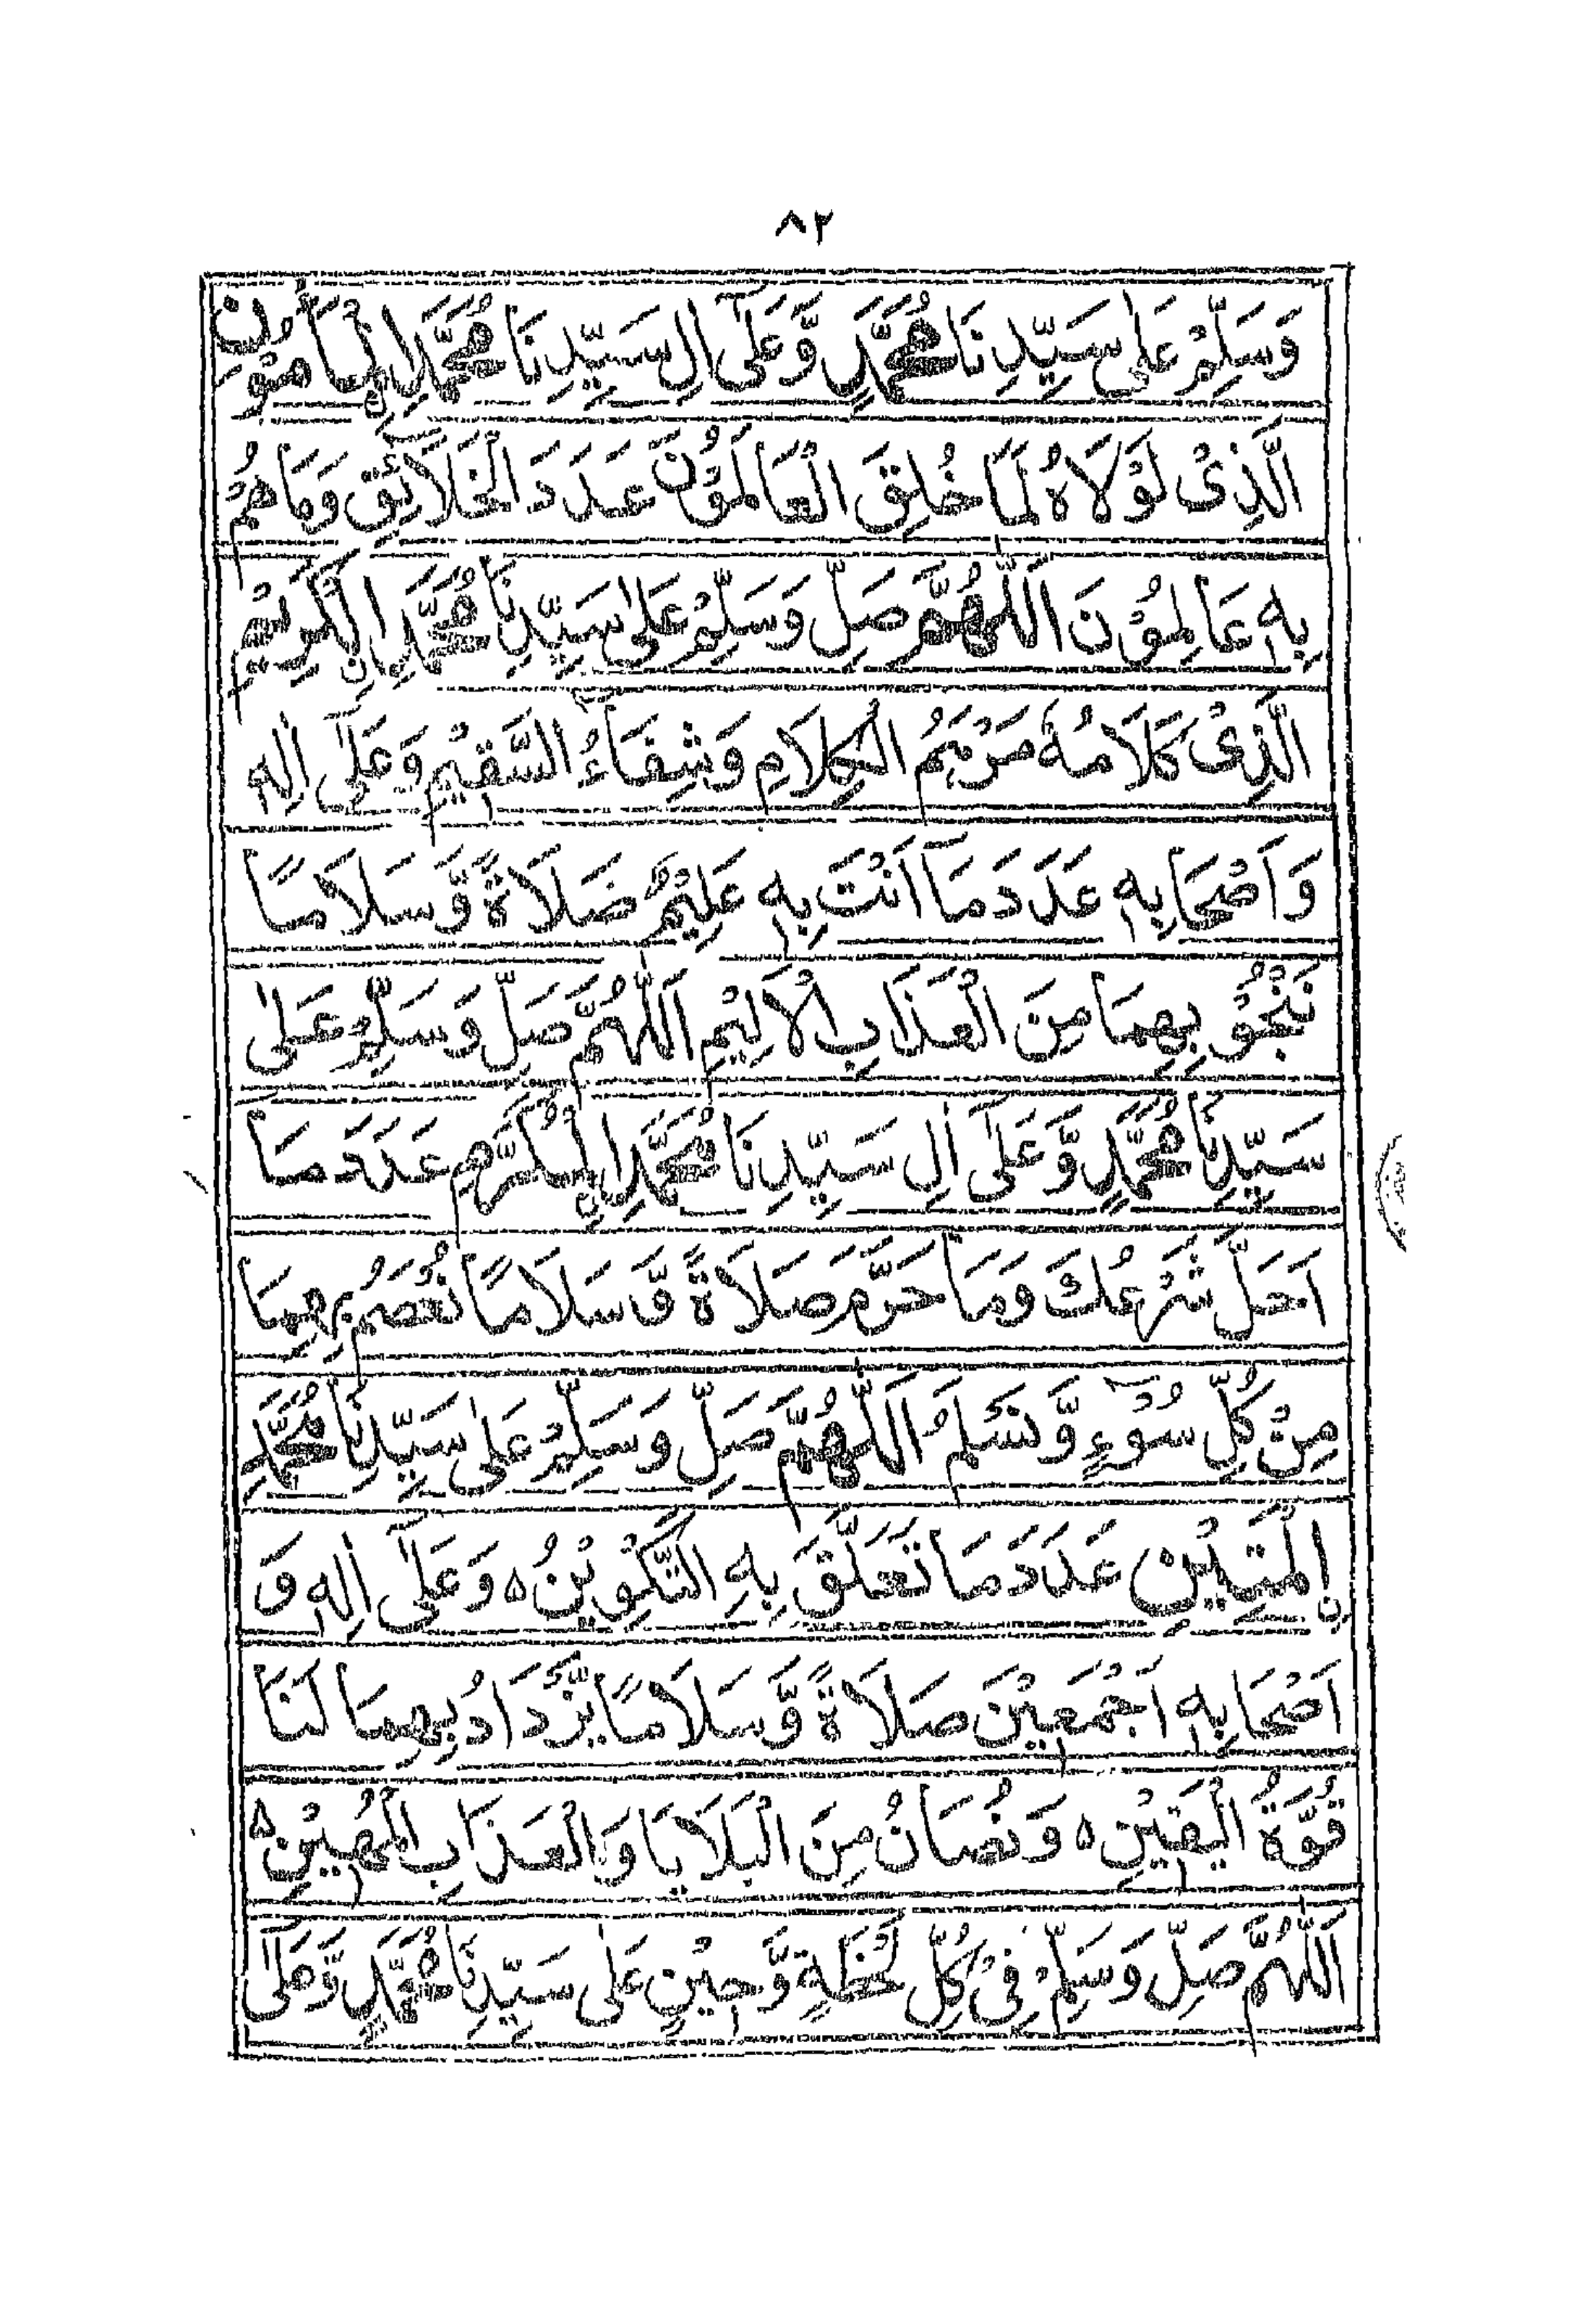 ٨٢
وَسَلِّمْ عَلٰى سَيِّدِنَا مُحَمَّدٍ وَّعَلٰٓى اٰلِ سَيِّدِنَا مُحَمَّدِ ۨالْمَأْمُوْنِ
الَّذِىْ لَوْلَاهُ لَمَا خُلِقَ الْعَالَمُوْنَ عَدَدَ الْخَلَآئِقِ وَمَا هُمْ
بِهٖ عَالِمُوْنَ اَللّٰهُمَّ صَلِّ وَسَلِّمْ عَلٰى سَيِّدِنَا مُحَمَّدِ ۨالْكَرِيْمِ
الَّذِىْ كَلَامُهٗ مَرْهَمُ الْكِلَامِ وَشِفَآءُ السَّقِيْمِ وَعَلٰٓى اٰلِهٖ
وَاَصْحَابِهٖ عَدَدَ مَآ اَنْتَ بِهٖ عَلِيْمٌ صَلَاةً وَّسَلَامًا
نَنْجُوْ بِهِمَا مِنَ الْعَذَابِ الْاَلِيْمِ اَللّٰهُمَّ صَلِّ وَسَلِّمْ عَلٰى
سَيِّدِنَا مُحَمَّدٍ وَّعَلٰٓى اٰلِ سَيِّدِنَا مُحَمَّدِ ۨالْمُكَرَّمِ عَدَدَ مَا
اَحَلَّ شَرْعُكَ وَمَا حَرَّمَ صَلَاةً وَّسَلَامًا نُعْصَمُ بِهِمَا
مِنْ كُلِّ سُوْٓءٍ وَّنَسْلَمُ اَللّٰهُمَّ صَلِّ وَسَلِّمْ عَلٰى سَيِّدِنَا مُحَمَّدِ
ۨالْمَتِيْنِ عَدَدَ مَا تَعَلَّقَ بِهِ التَّكْوِيْنُ ە وَعَلٰٓى اٰلِهٖ وَ
اَصْحَابِهٖ اَجْمَعِيْنَ صَلَاةً وَّسَلَامًا يَّزْدَادُ بِهِمَا لَنَا
قُوَّةُ الْيَقِيْنِ ە وَنُصَانُ مِنَ الْبَلَايَا وَالْعَذَابِ الْمُهِيْنِ ە
اَللّٰهُمَّ صَلِّ وَسَلِّمْ فِىْ كُلِّ لَحْظَةٍ وَّحِيْنٍ عَلٰى سَيِّدِنَا مُحَمَّدٍ وَّعَلٰٓى